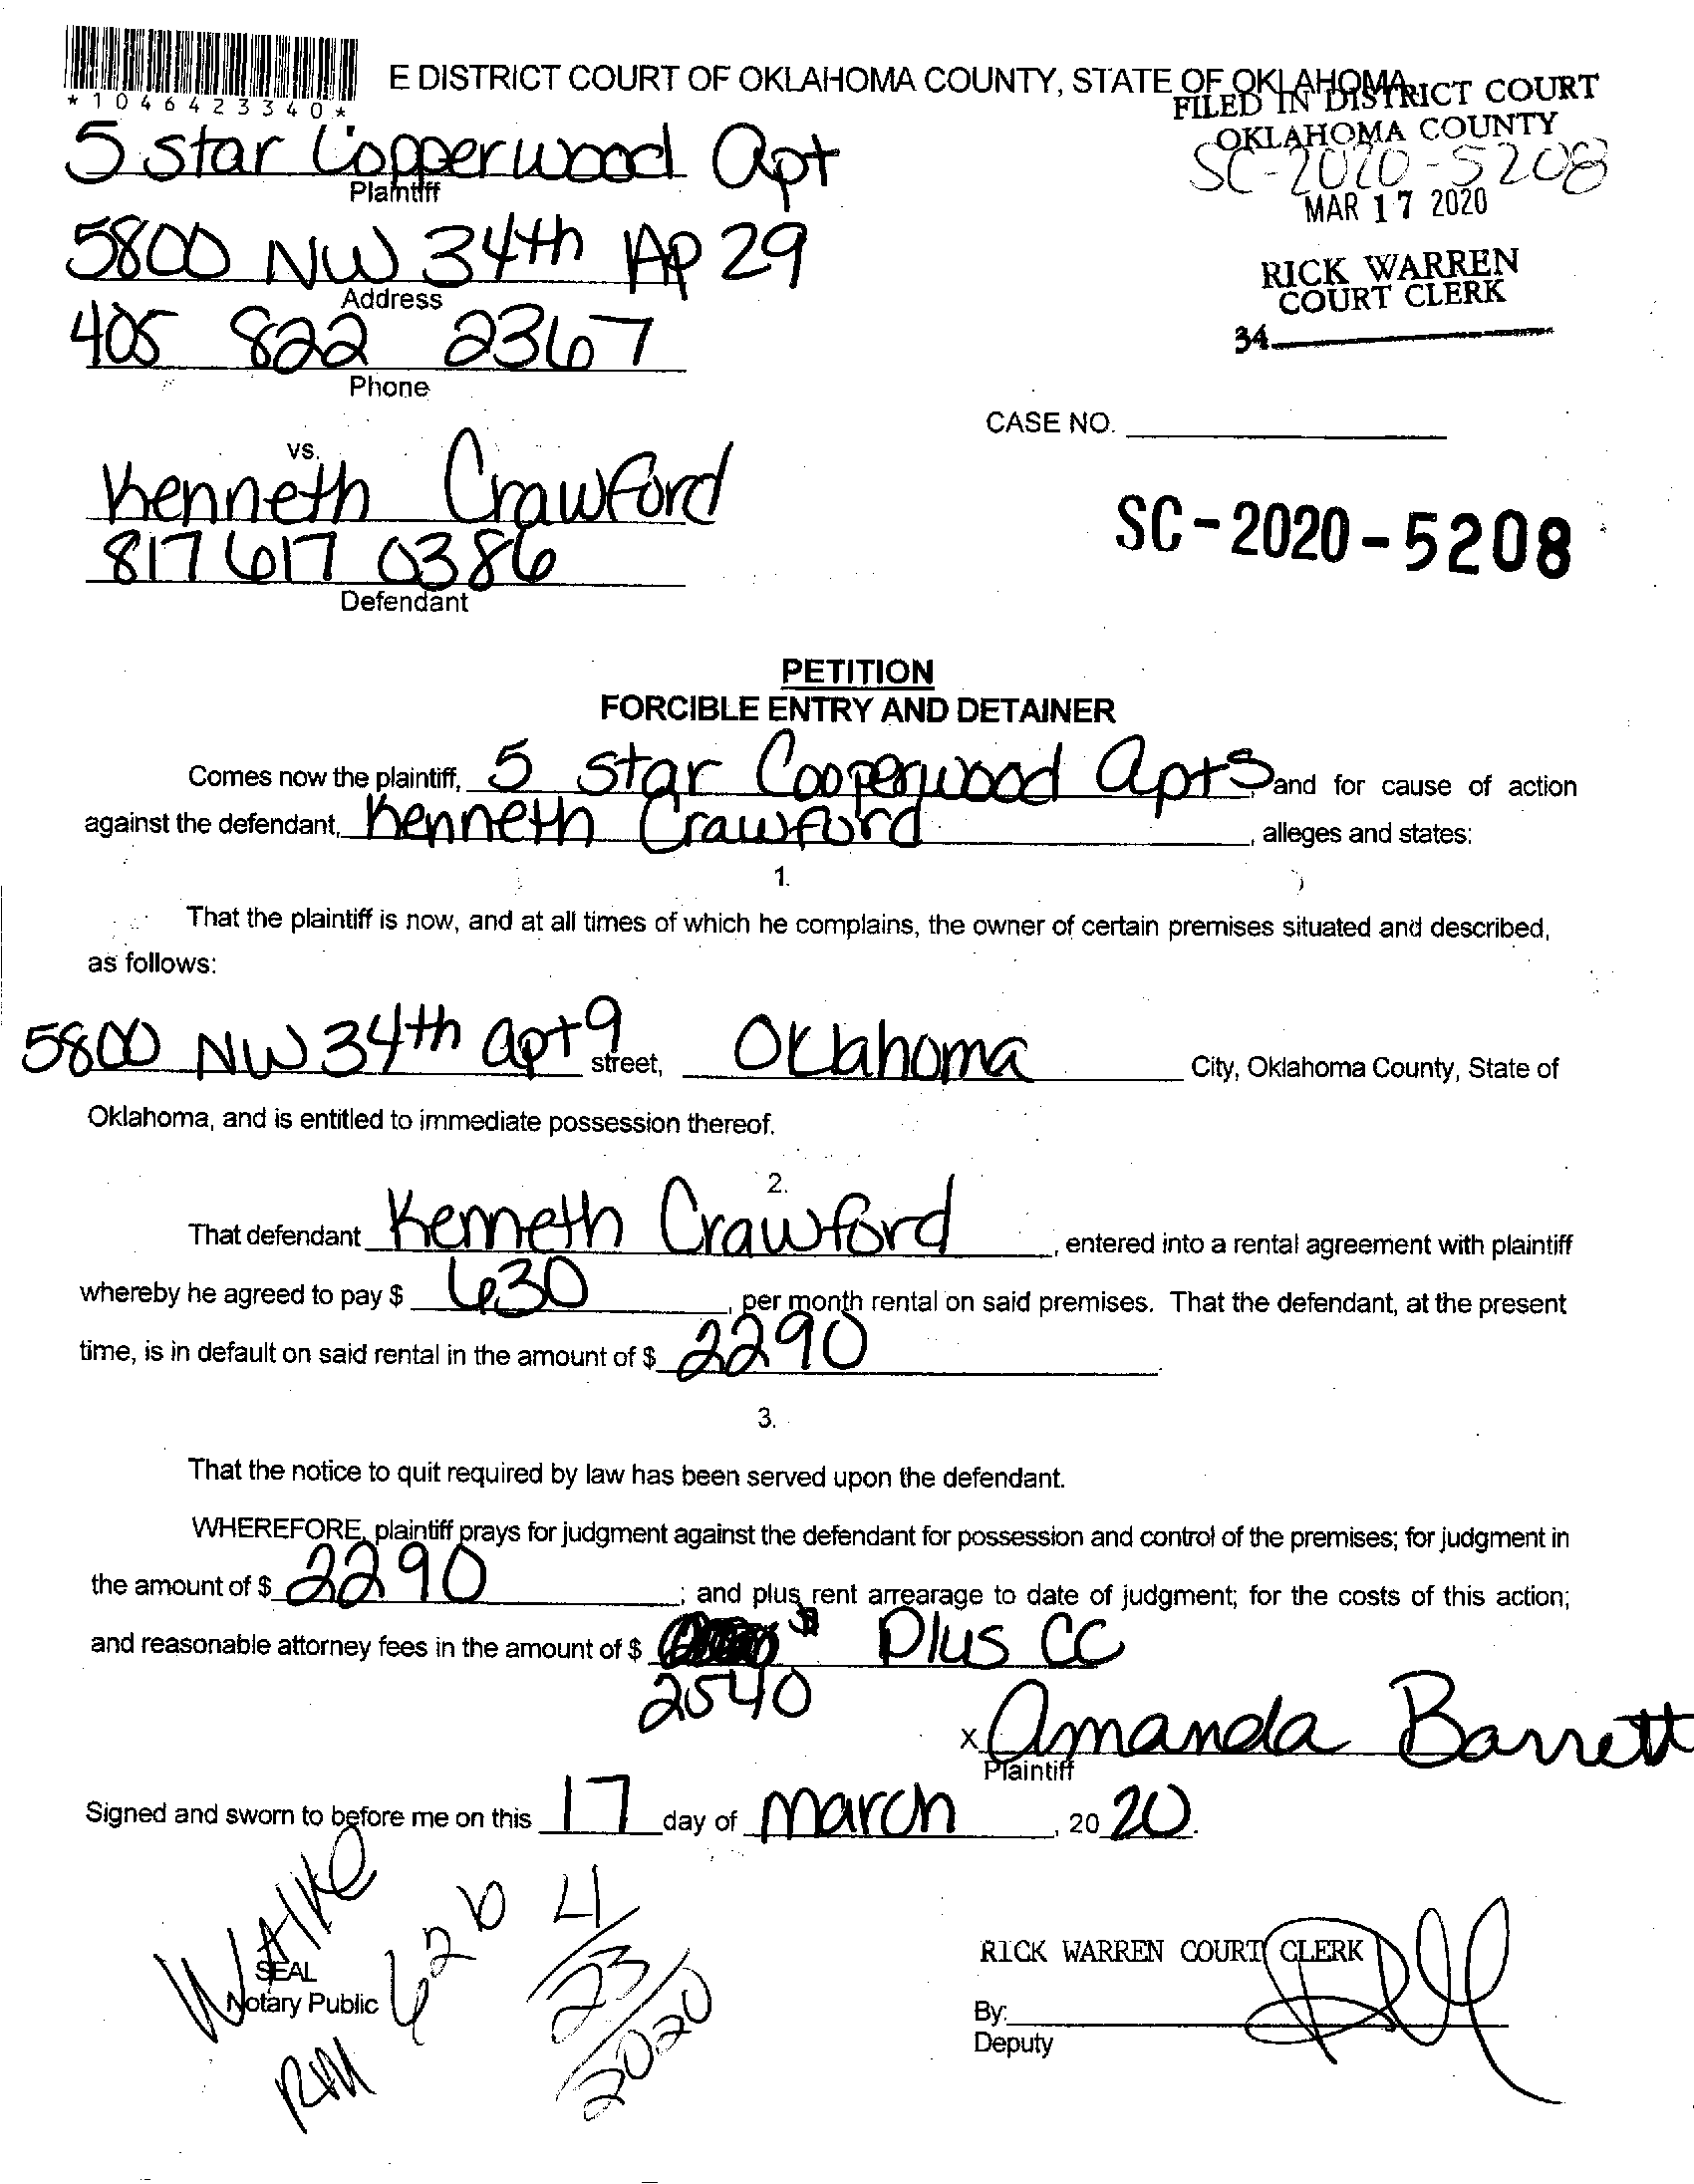 *1046423340*
E DISTRICT COURT OF OKLAHOMA COUNTY, STATE OF OKLAHOMA
FILED IN DISTRICT COURT
OKLAHOMA COUNTY
SC-2020-5208
MAR 17 2020
RICK WARREN
COURT CLERK
34
5 star Copperwood Apt
Plaintiff
5800 NW 34th AP 29
Address
405 822 2367
Phone
CASE NO.
vs.
Kenneth Crawford
817 617 0386
Defendant
SC-2020-5208
PETITION
FORCIBLE ENTRY AND DETAINER
Comes now the plaintiff, 5 star Cooperwood Apts, and for cause of action
against the defendant, Kenneth Crawford, alleges and states:
1.
That the plaintiff is now, and at all times of which he complains, the owner of certain premises situated and described,
as follows:
5800 NW 34th apt 9 street, Oklahoma City, Oklahoma County, State of
Oklahoma, and is entitled to immediate possession thereof.
2.
That defendant Kenneth Crawford, entered into a rental agreement with plaintiff
whereby he agreed to pay $ 630, per month rental on said premises. That the defendant, at the present
time, is in default on said rental in the amount of $ 2290.
3.
That the notice to quit required by law has been served upon the defendant.
WHEREFORE, plaintiff prays for judgment against the defendant for possession and control of the premises; for judgment in
the amount of $ 2290; and plus rent arrearage to date of judgment; for the costs of this action;
and reasonable attorney fees in the amount of $ Plus CC
2540
x Amanda Barrett
Plaintiff
Signed and sworn to before me on this 17 day of March, 20 20.
Walke
SEAL
Notary Public
RM 626
4/23/2020
RICK WARREN COURT CLERK
By:
Deputy